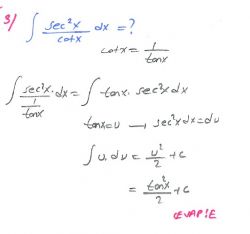 3/ ∫ sec²x / cotx dx = ?
cotx = 1 / tanx
∫ sec²x / (1 / tanx) . dx = ∫ tanx . sec²x dx
tanx = u → sec²x dx = du
∫ u . du = u² / 2 + c
= tan²x / 2 + c